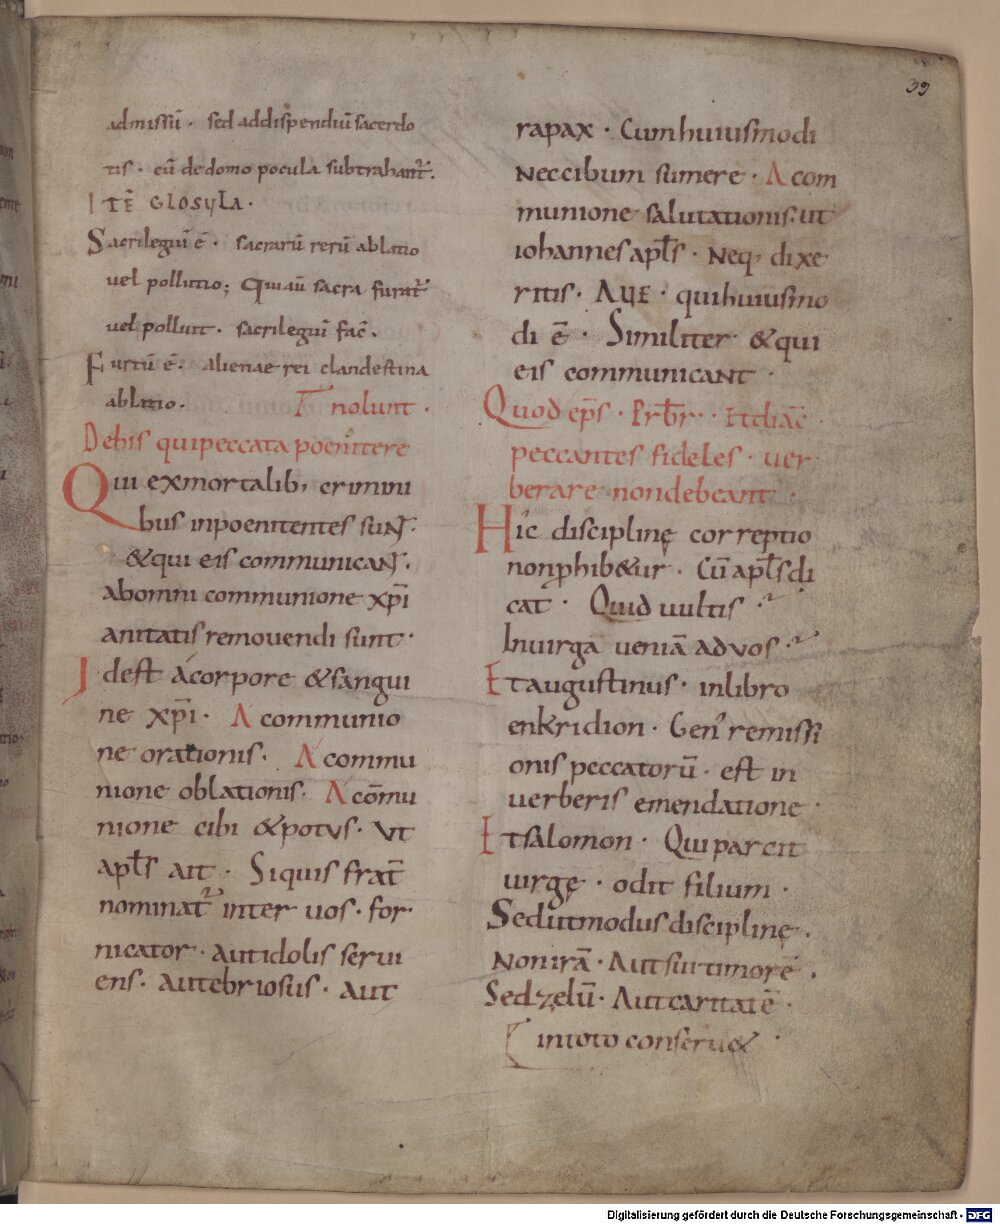 39
admissū · sed addispendiū sacerdo
tis · cū de domo pocula subtrahant᷑.
ITĒ GLOSULA ·
Sacrilegiū ē · sacrarū rerū ablatio
uel pollutio; Qui aū sacra furat᷑
uel polluit · sacrilegiū fac̄ ·
Furtū ē · alienae rei clandestina
ablatio · nolunt ·
De his qui peccata poenitere
Qui ex mortalib; crimini
bus inpoenitentes sunt ·
& qui eis communicant ·
ab omni communione xp̄i
anitatis removendi sunt ·
Id est á corpore & sangui
ne xp̄i · A communio
ne orationis · A commu
nione oblationis · A cōmu
nione cibi & potus · ut
apl̄s ait · Si quis frat̄
nominat᷑ inter uos · for
nicator · aut idolis serui
ens · aut ebriosus · aut
rapax · Cum huiusmodi
nec cibum sumere · A com
munione salutationis · ut
iohannes apl̄s · Neq; dixe
ritis · AVE · qui huiusmo
di ē · Similiter & qui
eis communicant ·
Quod ep̄s · Prb̄r · Et diac̄
peccantes fideles · uer
berare non debeant ·
Hic discipline correptio
non phib&ur · Cū apl̄s di
cat · Quid uultis ·
In uirga ueniā ad vos ·
Et augustinus · in libro
enkridion · Gen' remissi
onis peccatorū · est in
uerberis emendatione ·
Et salomon · Qui parcit
uirgę · odit filium ·
Sed ut modus disciplinę ·
Non irā · Aut sui timorē ·
Sed zelū · Aut caritatē ·
in toto conseru&
Digitalisierung gefördert durch die Deutsche Forschungsgemeinschaft - DFG